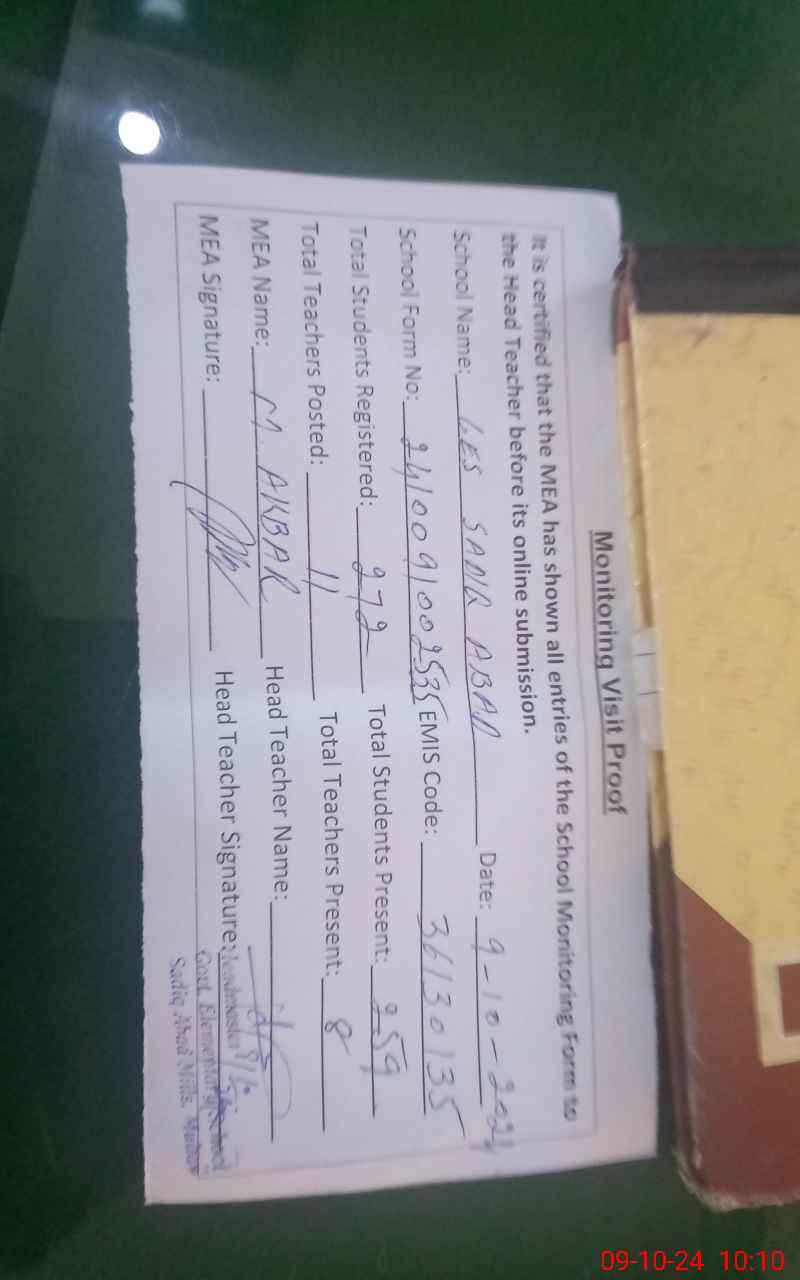 Monitoring Visit Proof
It is certified that the MEA has shown all entries of the School Monitoring Form to
the Head Teacher before its online submission.
School Name: Date: 9-10-2024
School Form No: 2410091002535 EMIS Code: 36130135
Total Students Registered: 272 Total Students Present: 259
Total Teachers Posted: 11 Total Teachers Present: 8
MEA Name: M. AKBAR Head Teacher Name:
MEA Signature: Head Teacher Signature:
Headmaster
Govt. Elementary School
Sadiq Abad Mills,
09-10-24 10:10